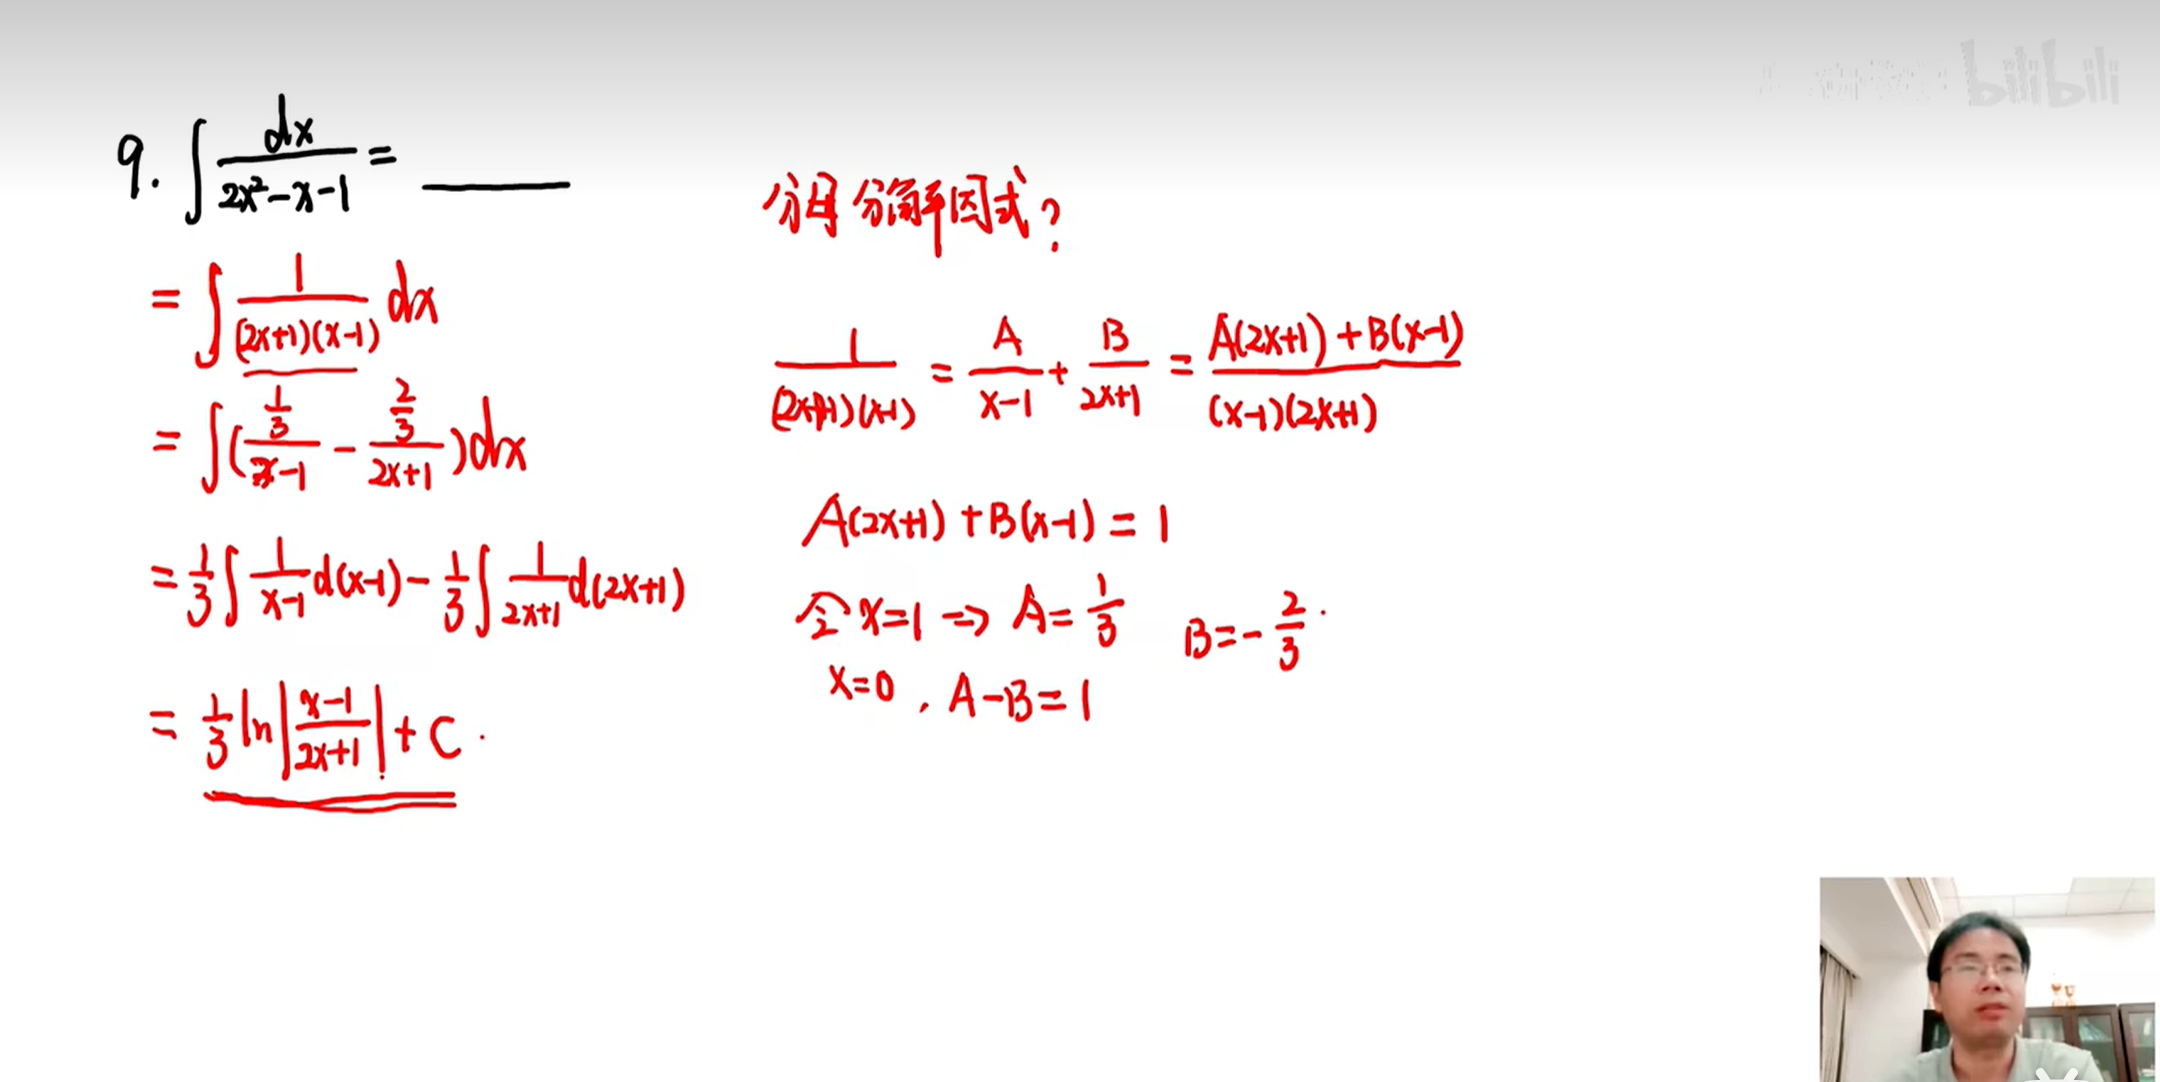 9. ∫ dx/(2x²-x-1) = ______
= ∫ 1/((2x+1)(x-1)) dx
= ∫ ( (1/3)/(x-1) - (2/3)/(2x+1) ) dx
= 1/3 ∫ 1/(x-1) d(x-1) - 1/3 ∫ 1/(2x+1) d(2x+1)
= 1/3 ln |(x-1)/(2x+1)| + C.
分母分解因式?
1/((2x+1)(x-1)) = A/(x-1) + B/(2x+1) = (A(2x+1)+B(x-1))/((x-1)(2x+1))
A(2x+1)+B(x-1) = 1
令 x=1 => A = 1/3 B = -2/3.
x=0, A-B=1
bilibili